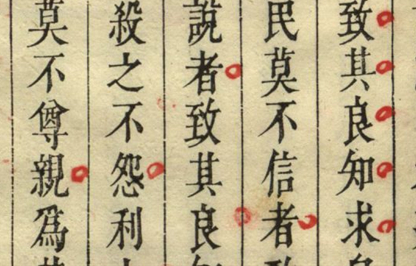 致其良知求
民莫不信者
說者致其良
殺之不怨利
莫不尊親為